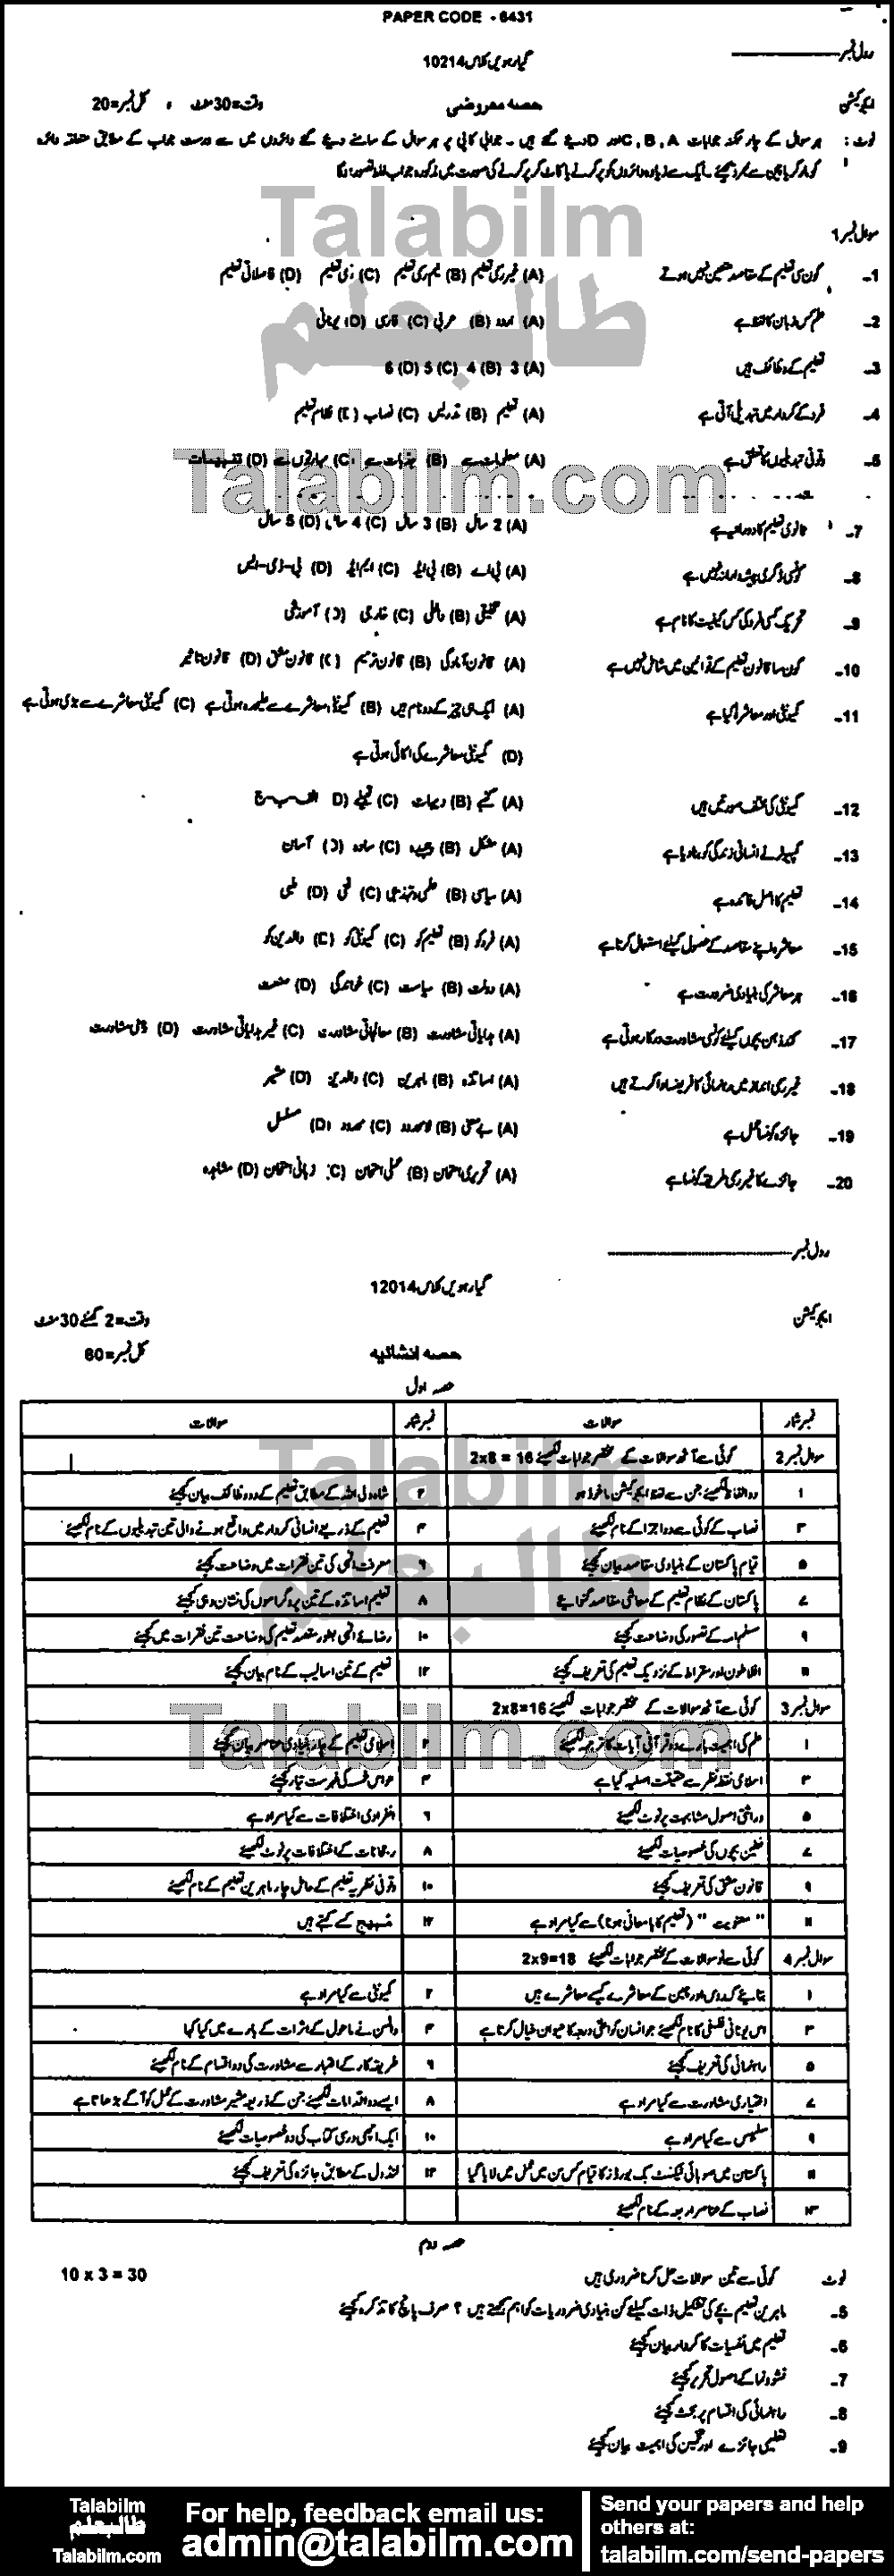 PAPER CODE - 6431
رول نمبر
گیارہویں کلاس 10214
ایجوکیشن حصہ معروضی وقت=30 منٹ ، کل نمبر=20
نوٹ: ہر سوال کے چار ممکنہ جوابات A ,B ,C اور D دیے گئے ہیں ۔ جوابی کاپی پر ہر سوال کے سامنے دیے گئے دائروں میں سے درست جواب کے مطابق متعلقہ دائرہ
کو مارکر یا پین سے بھر دیجئے ۔ ایک سے زیادہ دائروں کو پر کرنے یا کاٹ کر پر کرنے کی صورت میں مذکورہ جواب غلط تصور ہوگا
Talabilm
طالبعلم
سوال نمبر 1
1۔ کون سی تعلیم کے مقاصد متعین نہیں ہوتے (A) غیر رسمی تعلیم (B) نیم رسمی تعلیم (C) رسمی تعلیم (D) فاصلاتی تعلیم
2۔ علم کس زبان کا لفظ ہے (A) اردو (B) عربی (C) فارسی (D) یونانی
3۔ تعلیم کے وظائف ہیں (A) 3 (B) 4 (C) 5 (D) 6
4۔ فرد کے کردار میں تبدیلی آتی ہے (A) تعلیم (B) تدریس (C) نصاب نظام تعلیم
5۔ وقوفی تبدیلیوں کا تعلق ہے (A) معلومات سے (B) جذبات سے (C) مہارتوں سے (D)
Talabilm.com
7۔ ثانوی تعلیم کا دورانیہ ہے (A) 2 سال (B) 3 سال (C) 4 سال (D) 5 سال
8۔ کونسی ڈگری پیشہ ورانہ نہیں ہے (A) بی اے (B) بی ایڈ (C) ایم ایڈ (D) بی-ڈی-ایس
9۔ تحریک کسی فرد کی کس کیفیت کا نام ہے (A) تخلیقی (B) داخلی (C) خارجی آموزشی
10۔ کون سا قانون تعلیم کے قوانین میں شامل نہیں ہے (A) قانون آمادگی (B) قانون ترمیم قانون مشق (D) قانون تاثیر
11۔ کمیونٹی اور معاشرہ کیا ہے (A) ایک ہی چیز کے دو نام ہیں (B) کمیونٹی معاشرے سے علیحدہ ہوتی ہے (C) کمیونٹی معاشرے سے بڑی ہوتی ہے
(D) کمیونٹی معاشرے کی اکائی ہوتی ہے
12۔ کمیونٹی کی مختلف صورتیں ہیں (A) کنبے (B) دیہات (C) قبیلے (D الف-ب-ج
13۔ کمپیوٹر نے انسانی زندگی کو بنا دیا ہے (A) مشکل (B) پیچیدہ (C) سادہ آسان
14۔ تعلیم کا اصل فائدہ ہے (A) سیاسی (B) علمی و تہذیبی (C) فنی (D) طبی
15۔ معاشرہ اپنے مقاصد کے حصول کیلئے استعمال کرتا ہے (A) فرد کو (B) تعلیم کو (C) کمیونٹی کو والدین کو
16۔ ہر معاشرے کی بنیادی ضرورت ہے (A) دولت (B) سیاست (C) خواندگی (D) صنعت
17۔ کند ذہن بچوں کیلئے کونسی مشاورت درکار ہوتی ہے (A) ہدایاتی مشاورت (B) معالجاتی مشاورت (C) غیر ہدایاتی مشاورت (D) مشاورت
18۔ غیر رسمی انداز میں رہنمائی کا فریضہ ادا کرتے ہیں (A) اساتذہ (B) ماہرین (C) والدین (D) مشیر
19۔ جائزہ کونسا عمل ہے (A) بے معنی (B) لامحدود (C) محدود مسلسل
20۔ جائزے کا غیر رسمی طریقہ کونسا ہے (A) تحریری امتحان (B) عملی امتحان زبانی امتحان (D) مشاہدہ
رول نمبر
گیارہویں کلاس 12014
ایجوکیشن وقت=2 گھنٹے 30 منٹ
حصہ انشائیہ کل نمبر=60
حصہ اول
نمبر شمار سوالات نمبر شمار سوالات
سوال نمبر 2 کوئی سے آٹھ سوالات کے مختصر جوابات لکھیئے 16 = 2x8
Talabilm
۱ دو الفاظ لکھیئے جن سے لفظ ایجوکیشن ماخوذ ہو ۲ شاہ ولی اللہ کے مطابق تعلیم کے دو وظائف بیان کیجئے
۳ نصاب کے کوئی سے دو اجزا کے نام لکھیئے ۴ تعلیم کے ذریعے انسانی کردار میں واقع ہونے والی تین تبدیلیوں کے نام لکھیئے
طالبعلم
۵ قیام پاکستان کے بنیادی مقاصد بیان کیجئے ۶ معرفت الٰہی کی تین فقرات میں وضاحت کیجئے
۷ پاکستان کے نظام تعلیم کے معاشی مقاصد گنوایئے ۸ تعلیم اساتذہ کے تین پروگراموں کی نشان دہی کیجئے
۹ کے تصور کی وضاحت کیجئے ۱۰ رضائے الٰہی بطور مقصد تعلیم کی وضاحت تین فقرات میں کیجئے
۱۱ افلاطون اور سقراط کے نزدیک تعلیم کی تعریف کیجئے ۱۲ تعلیم کے تین اسالیب کے نام بیان کیجئے
سوال نمبر 3 کوئی سے آٹھ سوالات کے مختصر جوابات لکھیئے 2x8=16
Talabilm.com
۱ علم کی اہمیت بارے دو قرآنی آیات کا ترجمہ لکھیئے ۲ اسلامی تعلیم کے چار بنیادی عناصر بیان کیجئے
۳ اسلامی نقطہ نظر سے حقیقت اصلیہ کیا ہے ۴ حواس خمسہ کی فہرست تیار کیجئے
۵ وراثتی اصول مشابہت پر نوٹ لکھیئے ۶ انفرادی اختلافات سے کیا مراد ہے
۷ فطین بچوں کی خصوصیات لکھیئے ۸ رجحانات کے اختلافات پر نوٹ لکھیئے
۹ قانون مشق کی تعریف کیجئے ۱۰ وقوفی نظریہ تعلیم کے حامل چار ماہرین تعلیم کے نام لکھیئے
۱۱ "معنویت" (تعلیم کا بامعانی ہونا) سے کیا مراد ہے ۱۲ مُہیج کسے کہتے ہیں
سوال نمبر 4 کوئی سے نو سوالات کے مختصر جوابات لکھیئے 2x9=18
۱ بتایئے کہ روس اور چین کے معاشرے کیسے معاشرے ہیں ۲ کمیونٹی سے کیا مراد ہے
۳ اس یونانی فلسفی کا نام لکھیئے جو انسان کو اعلیٰ درجہ کا حیوان خیال کرتا ہے ۴ واٹسن نے ماحول کے اثرات کے بارے میں کیا کہا
۵ راہنمائی کی تعریف کیجئے ۶ طریقہ کار کے اعتبار سے مشاورت کی دو اقسام کے نام لکھیئے
۷ اختیاری مشاورت سے کیا مراد ہے ۸ ایسے دو اقدامات لکھیئے جن کے ذریعہ مشیر مشاورت کے عمل کو آگے بڑھاتا ہے
۹ سلیبس سے کیا مراد ہے ۱۰ ایک اچھی درسی کتاب کی دو خصوصیات لکھیئے
۱۱ پاکستان میں صوبائی ٹیکسٹ بک بورڈز کا قیام کس سن میں عمل میں لایا گیا ۱۲ کے مطابق جائزہ کی تعریف کیجئے
۱۳ نصاب کے عناصر اربعہ کے نام لکھیئے
حصہ دوم
نوٹ کوئی سے تین سوالات حل کرنا ضروری ہیں 10 x 3 = 30
5۔ ماہرین تعلیم بچے کی تشکیل ذات کیلئے کن بنیادی ضروریات کو اہم سمجھتے ہیں ؟ صرف پانچ کا تذکرہ کیجئے
6۔ تعلیم میں نفسیات کا کردار بیان کیجئے
7۔ نشوونما کے اصول تحریر کیجئے
8۔ راہنمائی کی اقسام پر بحث کیجئے
9۔ تعلیمی جائزے اور تعین کی اہمیت بیان کیجئے
Talabilm
طالبعلم
Talabilm.com
For help, feedback email us:
admin@talabilm.com
Send your papers and help
others at:
talabilm.com/send-papers